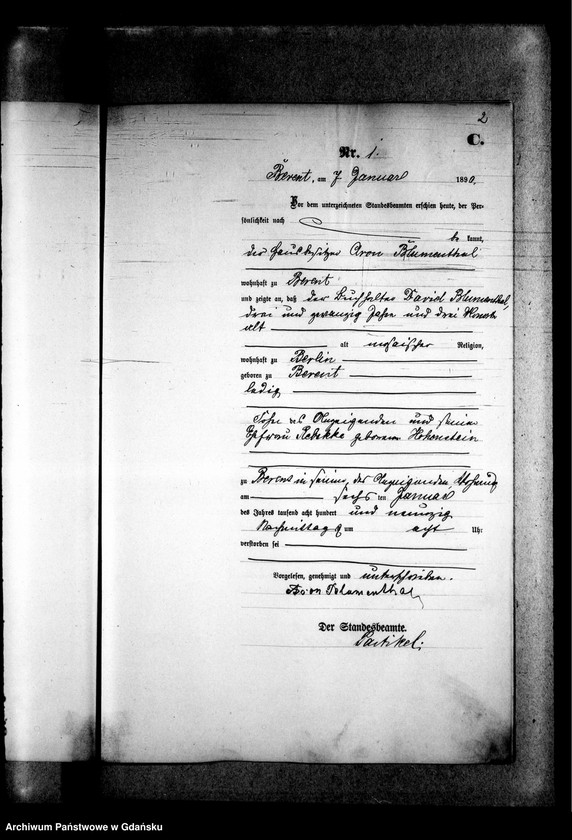 2
C.
Nr. 1.
Berent, am 7 Januar 1890.
Vor dem unterzeichneten Standesbeamten erschien heute, der Per-
sönlichkeit nach
be kannt,
der Hausbesitzer Aron Blumenthal
wohnhaft zu Berent
und zeigte an, daß der Buchhalter David Blumenthal,
drei und zwanzig Jahre und drei Monate
alt
alt mosaischer Religion,
wohnhaft zu Berlin
geboren zu Berent
ledig
Sohn des Anzeigenden und seiner
Ehefrau Rebekka geborenen Hohenstein
zu Berent in seiner, des Anzeigenden, Wohnung
am sechs ten Januar
des Jahres tausend acht hundert und neunzig
Nachmittags um acht Uhr
verstorben sei
Vorgelesen, genehmigt und unterschrieben.
Aron Blumenthal
Der Standesbeamte.
Partikel.
Archiwum Państwowe w Gdańsku